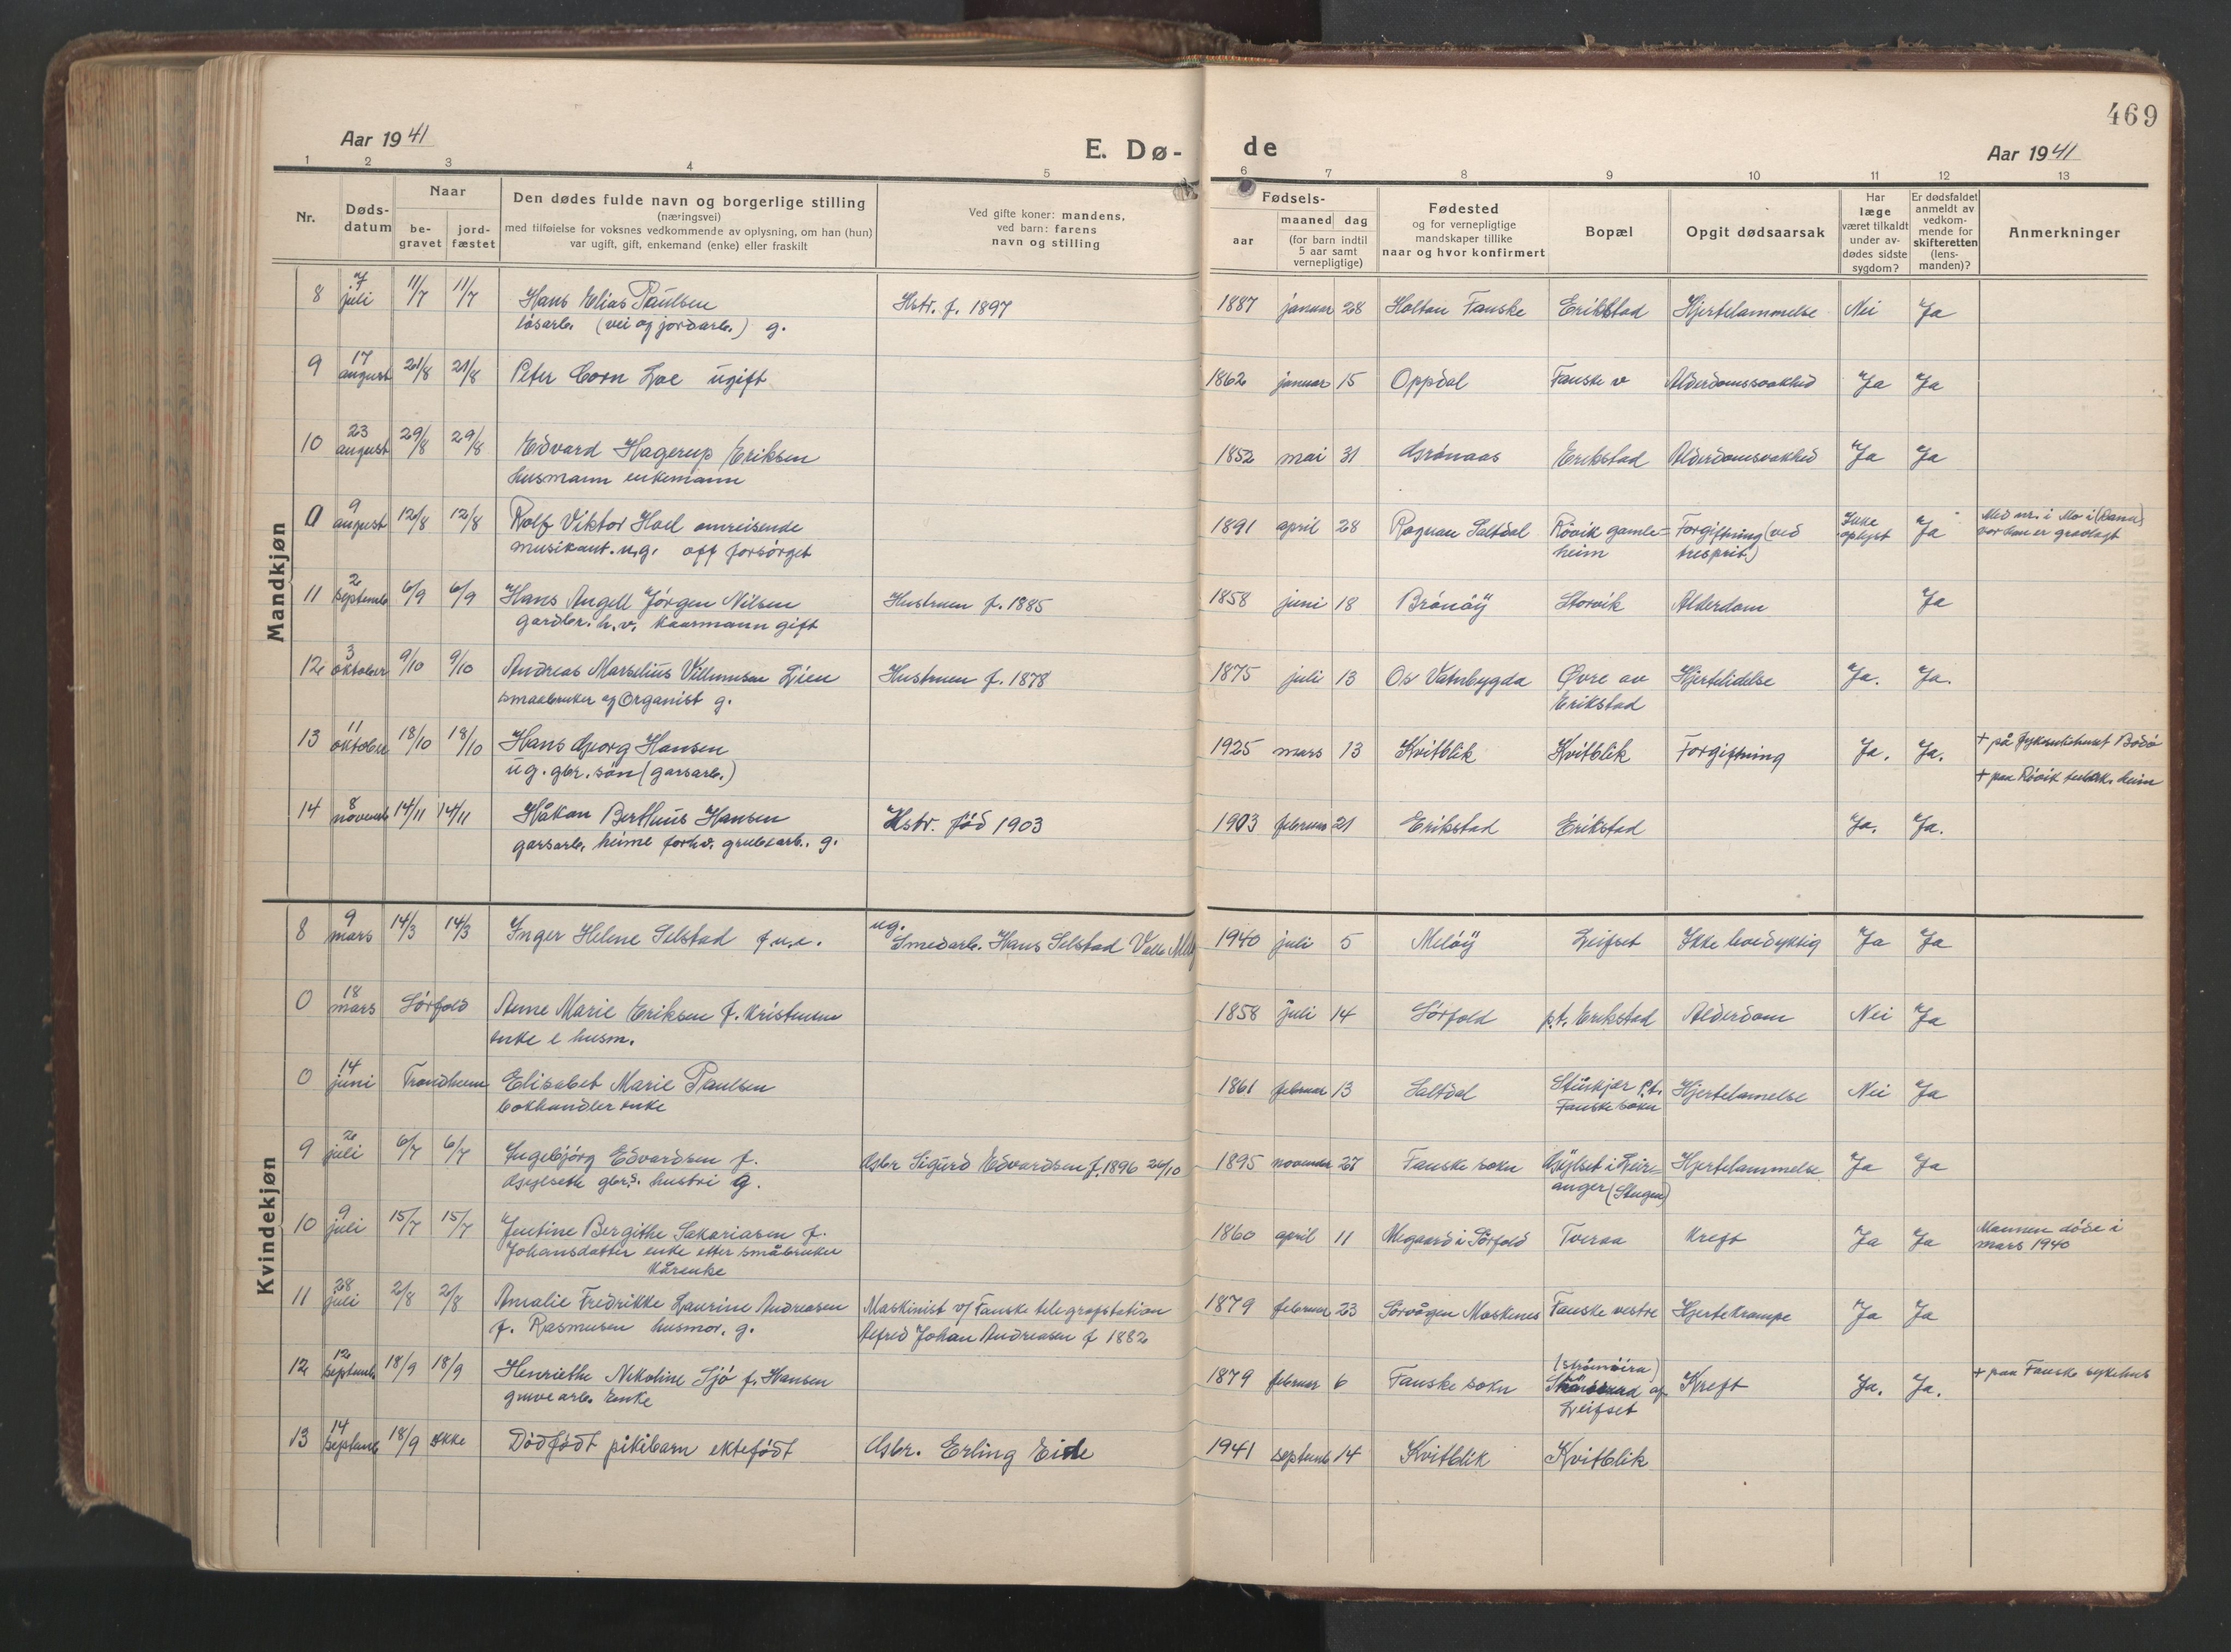 469
Aar 1941
E. Dø-
de
Aar 1941
1 2 3 4 5 6 7 8 9 10 11 12 13
Nr.
Døds-
datum
Naar
be-
gravet
jord-
fæstet
Den dødes fulde navn og borgerlige stilling
(næringsvei)
med tilføielse for voksnes vedkommende av oplysning, om han (hun)
var ugift, gift, enkemand (enke) eller fraskilt
Ved gifte koner: mandens,
ved barn: farens
navn og stilling
Fødsels-
aar
maaned dag
(for barn indtil
5 aar samt
vernepligtige)
Fødested
og for vernepligtige
mandskaper tillike
naar og hvor konfirmert
Bopæl
Opgit dødsaarsak
Har
læge
været tilkaldt
under av-
dødes sidste
sygdom?
Er dødsfaldet
anmeldt av
vedkom-
mende for
skifteretten
(lens-
manden)?
Anmerkninger
Mandkjøn
8 7 juli 11/7 11/7 Hans Elias Paulsen Hstr. f. 1897 1887 januar 28 Holtan Fauske Erikstad Hjertelammelse Nei Ja
løsarb. (vei og jordarb.) g.
9 17 august 21/8 21/8 Peter Corn Loe ugift 1862 januar 15 Oppdal Fauske v Alderdomssvakhed Ja Ja
10 23 august 29/8 29/8 Edvard Hagerup Eriksen 1852 mai 31 Grønaas Erikstad Alderdomsvakhed Ja Ja
husmann enkemann
0 9 august 12/8 12/8 Rolf Viktor Hoel omreisende 1891 april 28 Rognan Saltdal Røvik gamle- Forgiftning (ved Ikke Ja Med nr. i Mo i
musikant. ug. off forsørget heim tresprit) oplyst
11 2 septemb 6/9 6/9 Hans Angell Jørgen Nilsen Hustruen f. 1885 1858 juni 18 Brønøy Storvik Alderdom Ja
gardbr. h.v. kaarmann gift
12 3 oktober 9/10 9/10 Andreas Marselius Villumsen Lien Hustruen f. 1878 1875 juli 13 Os Vatnbygda Øvre av Hjertelidelse Ja. Ja.
smaabruker og Organist g. Erikstad
13 11 oktober 18/10 18/10 Hans Georg Hansen 1925 mars 13 Kvitblik Kvitblik Forgiftning Ja. Ja. + på fylksukehuset Bodø
ug. gbr. søn (garsarb.) + paa Røvik tuberk. heim
14 8 novemb 14/11 14/11 Håkon Berthius Hansen Hstr. fød 1903 1903 februar 21 Erikstad Erikstad Ja. Ja.
garsarb. heime forhv. grubearb. g.
Kvindekjøn
8 9 mars 14/3 14/3 Inger Helene Selstad f.u.e. ug.
Smedarb. Hans Selstad 1940 juli 5 Meløy Leifset Ikke levedyktig Ja Ja
0 18 mars Sørfold Anne Marie Eriksen f. Kristensen 1858 juli 14 Sørfold p.t. Erikstad Alderdom Nei Ja
enke e husm.
0 14 juni Trondheim Elisabet Marie Paulsen 1861 februar 13 Saltdal Stinkjær p.t. Hjertelamelse Nei Ja
bokhandler enke Fauske sokn
9 2 juli 6/7 6/7 Ingebjørg Edvardsen f. Gbr Sigurd Edvardsen f. 1896 26/10 1895 november 27 Fauske sokn Gyltset i Leir- Hjertelammelse Ja Ja
gbr.s. hustri g. anger (Steigen)
10 9 juli 15/7 15/7 Justine Bergithe Sakariasen f. 1860 april 11 Megaard i Sørfold Tveraa Kreft Ja Ja Mannen døde i
Johansdatter enke etter småbruker mars 1940
kårenke
11 28 juli 2/8 2/8 Amalie Fredrikke Laurine Andreasen Maskinist v/ Fauske telegrafstation 1879 februar 23 Sørvågen Moskenes Fauske vestre Hjertekrampe Ja Ja
f. Rasmusen husmor. g. Alfred Johan Andreasen f 1882
12 12 septemb 18/9 18/9 Henriethe Nikoline Sjø f. Hansen 1879 februar 6 Fauske sokn Kreft Ja. Ja. + paa Fauske sykehus
gruvearb. enke Leifset
13 14 septemb 18/9 ikke Dødfødt pikibarn ektefødt Gbr. Erling Eide 1941 septemb 14 Kvitblik Kvitblik